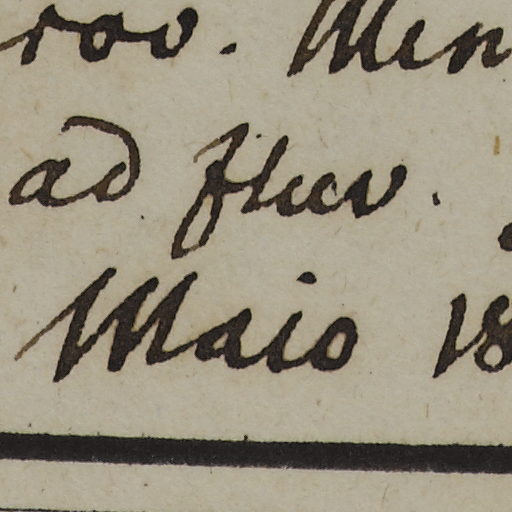 rov. Min
ad fluv.
Maio 18